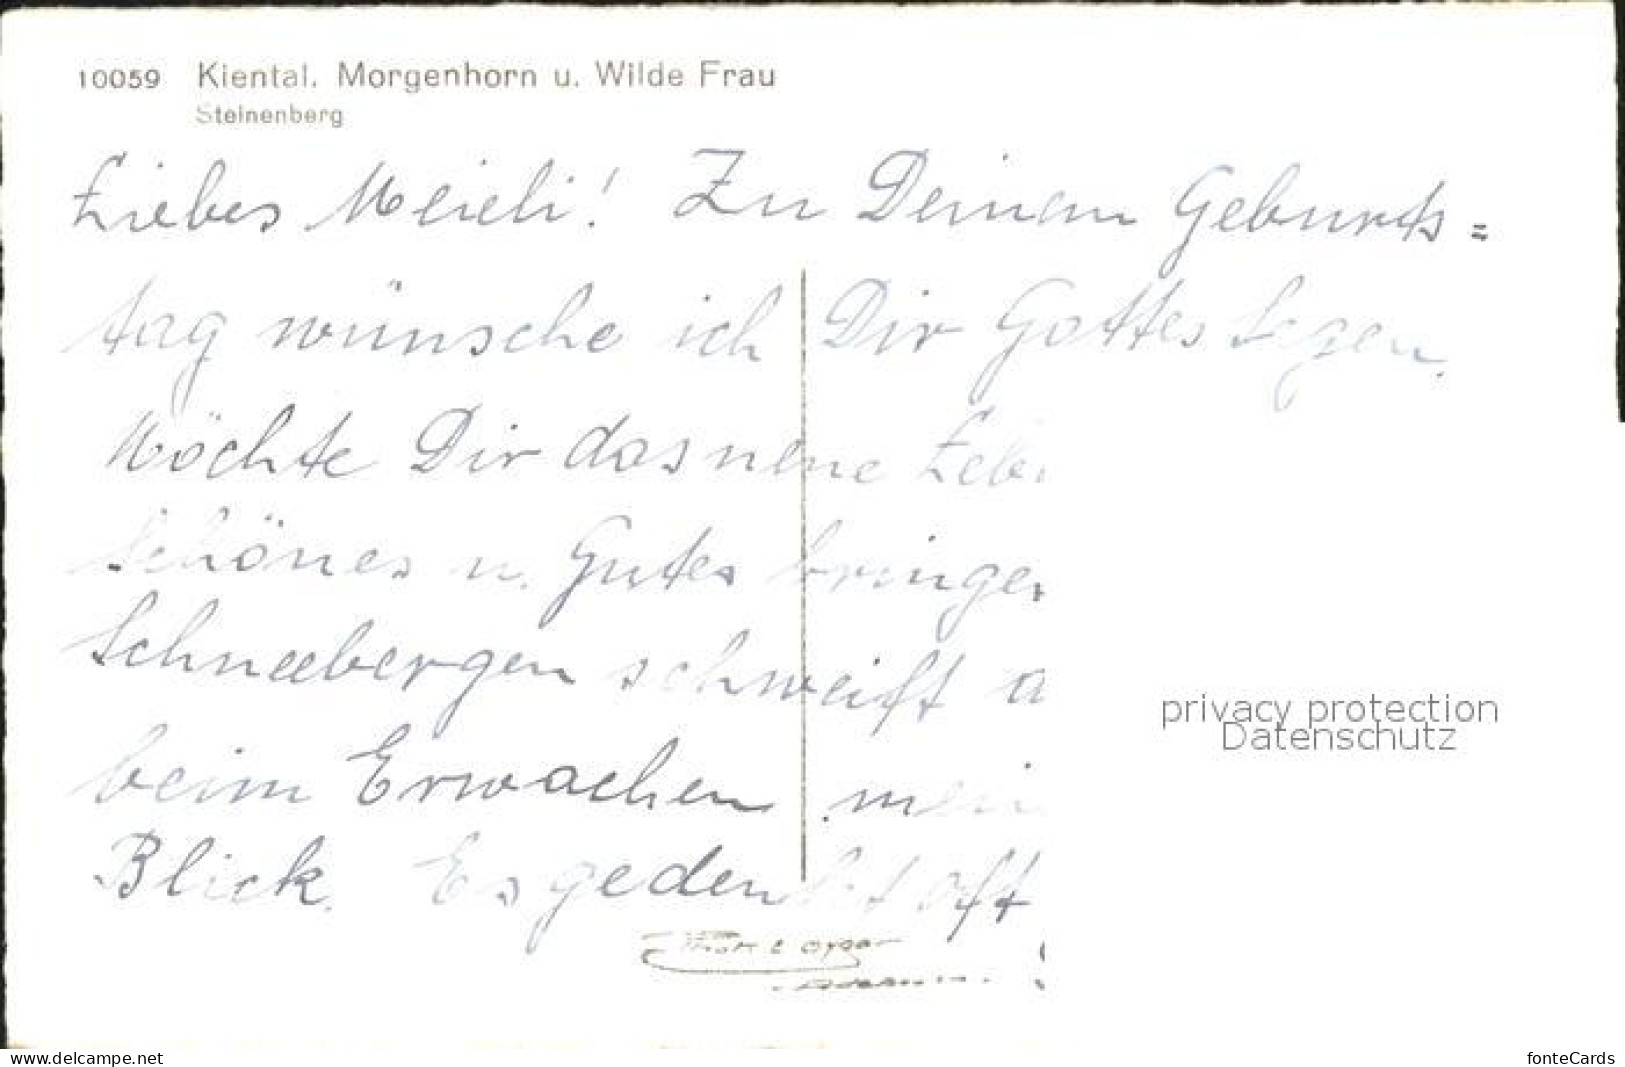 10059 Kiental. Morgenhorn u. Wilde Frau
Steinenberg
Liebes Meieli! Zu Deinem Geburts=
tag wünsche ich Dir Gottes Segen.
Möchte Dir das neue Lebe
Schönes u. Gutes bringen
Schneebergen schweift a
beim Erwachen mein
Blick. Es gedenkt oft
privacy protection
Datenschutz
www.delcampe.net
fonteCards